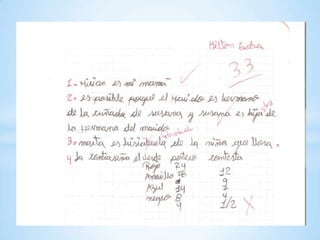 33
1.- es mi mamá
2.- es posible porque el marido es hermano
de la cuñada de susana y susana es hija de otra
la hermana del marido
3.- marta es bisabuela de la niña que llora.
y la contraseña el verde contesta
Rojo 24 12
Amarillo 18 9
Azul 14 7
negro 8 4
4 1/2